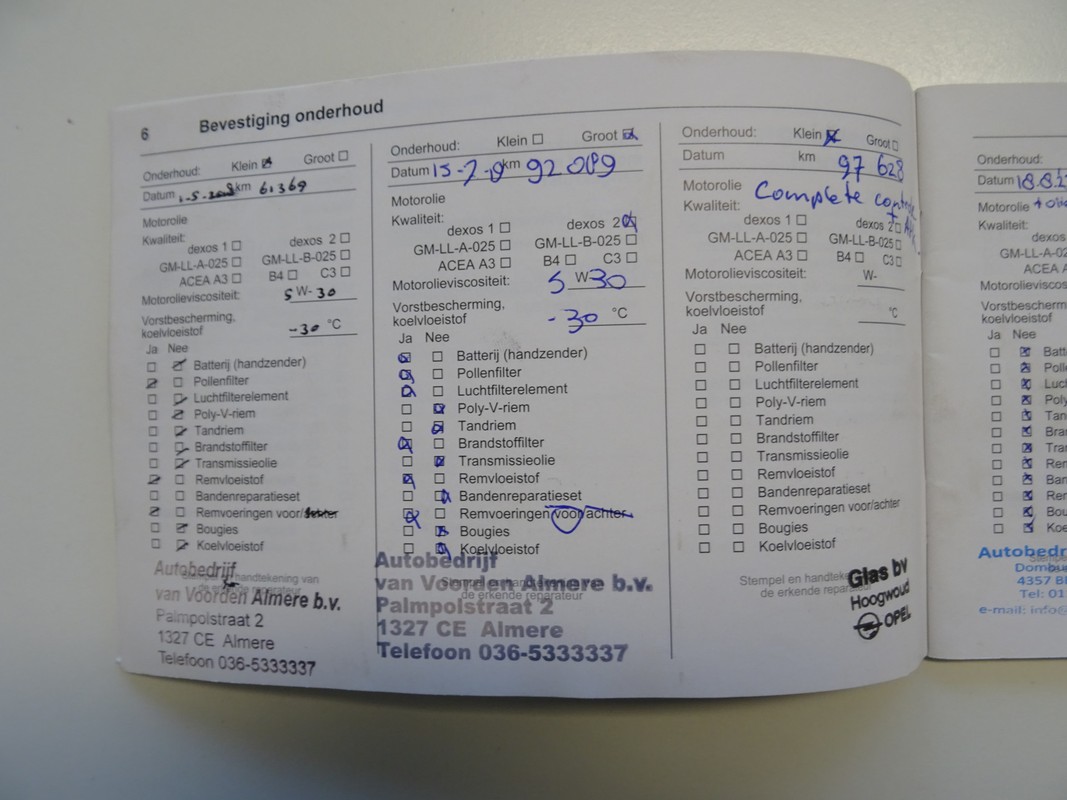 6 Bevestiging onderhoud
Onderhoud: Klein ☒ Groot ☐
Datum km 61369
Motorolie
Kwaliteit:
dexos 1 ☐ dexos 2 ☐
GM-LL-A-025 ☐ GM-LL-B-025 ☐
ACEA A3 ☐ B4 ☐ C3 ☐
Motorolieviscositeit: 5 W-30
Vorstbescherming,
koelvloeistof -30 °C
Ja Nee
☐ ☒ Batterij (handzender)
☒ ☐ Pollenfilter
☐ ☒ Luchtfilterelement
☐ ☒ Poly-V-riem
☐ ☒ Tandriem
☐ ☒ Brandstoffilter
☐ ☒ Transmissieolie
☒ ☐ Remvloeistof
☐ ☐ Bandenreparatieset
☒ ☐ Remvoeringen voor/achter
☐ ☒ Bougies
☐ ☒ Koelvloeistof
Stempel en handtekening van
de erkende reparateur
Autobedrijf
van Voorden Almere b.v.
Palmpolstraat 2
1327 CE Almere
Telefoon 036-5333337
Onderhoud: Klein ☐ Groot ☒
Datum km 92 089
Motorolie
Kwaliteit:
dexos 1 ☐ dexos 2 ☒
GM-LL-A-025 ☐ GM-LL-B-025 ☐
ACEA A3 ☐ B4 ☐ C3 ☐
Motorolieviscositeit: 5 W30
Vorstbescherming,
koelvloeistof -30 °C
Ja Nee
☒ ☐ Batterij (handzender)
☒ ☐ Pollenfilter
☒ ☐ Luchtfilterelement
☐ ☒ Poly-V-riem
☐ ☒ Tandriem
☒ ☐ Brandstoffilter
☐ ☒ Transmissieolie
☒ ☐ Remvloeistof
☐ ☒ Bandenreparatieset
☒ ☐ Remvoeringen voor/achter
☐ ☒ Bougies
☐ ☒ Koelvloeistof
Stempel en handtekening van
de erkende reparateur
Autobedrijf
van Voorden Almere b.v.
Palmpolstraat 2
1327 CE Almere
Telefoon 036-5333337
Onderhoud: Klein ☒ Groot ☐
Datum km 97 628
Motorolie Complete
Kwaliteit: +
dexos 1 ☐ dexos 2 ☐
GM-LL-A-025 ☐ GM-LL-B-025 ☐
ACEA A3 ☐ B4 ☐ C3 ☐
Motorolieviscositeit: W-
Vorstbescherming,
koelvloeistof °C
Ja Nee
☐ ☐ Batterij (handzender)
☐ ☐ Pollenfilter
☐ ☐ Luchtfilterelement
☐ ☐ Poly-V-riem
☐ ☐ Tandriem
☐ ☐ Brandstoffilter
☐ ☐ Transmissieolie
☐ ☐ Remvloeistof
☐ ☐ Bandenreparatieset
☐ ☐ Remvoeringen voor/achter
☐ ☐ Bougies
☐ ☐ Koelvloeistof
Stempel en handteke
de erkende repara
Glas bv
Hoogwoud
OPEL
Onderhoud:
Datum 18.8.
Motorolie
Kwaliteit:
dexos
GM-LL-A-02
ACEA A
Motorolieviscos
Vorstbescherming
koelvloeistof
Ja Nee
☐ ☒ Batt
☐ ☒ Polle
☐ ☒ Luch
☐ ☒ Poly
☐ ☒ Tan
☐ ☒ Bra
☐ ☒ Tra
☐ ☒ Rem
☐ ☒ Ban
☐ ☒ Rem
☐ ☒ Bou
☐ ☒ Koe
Autobedr
Dombu
4357 B
Tel: 01
e-mail: info@